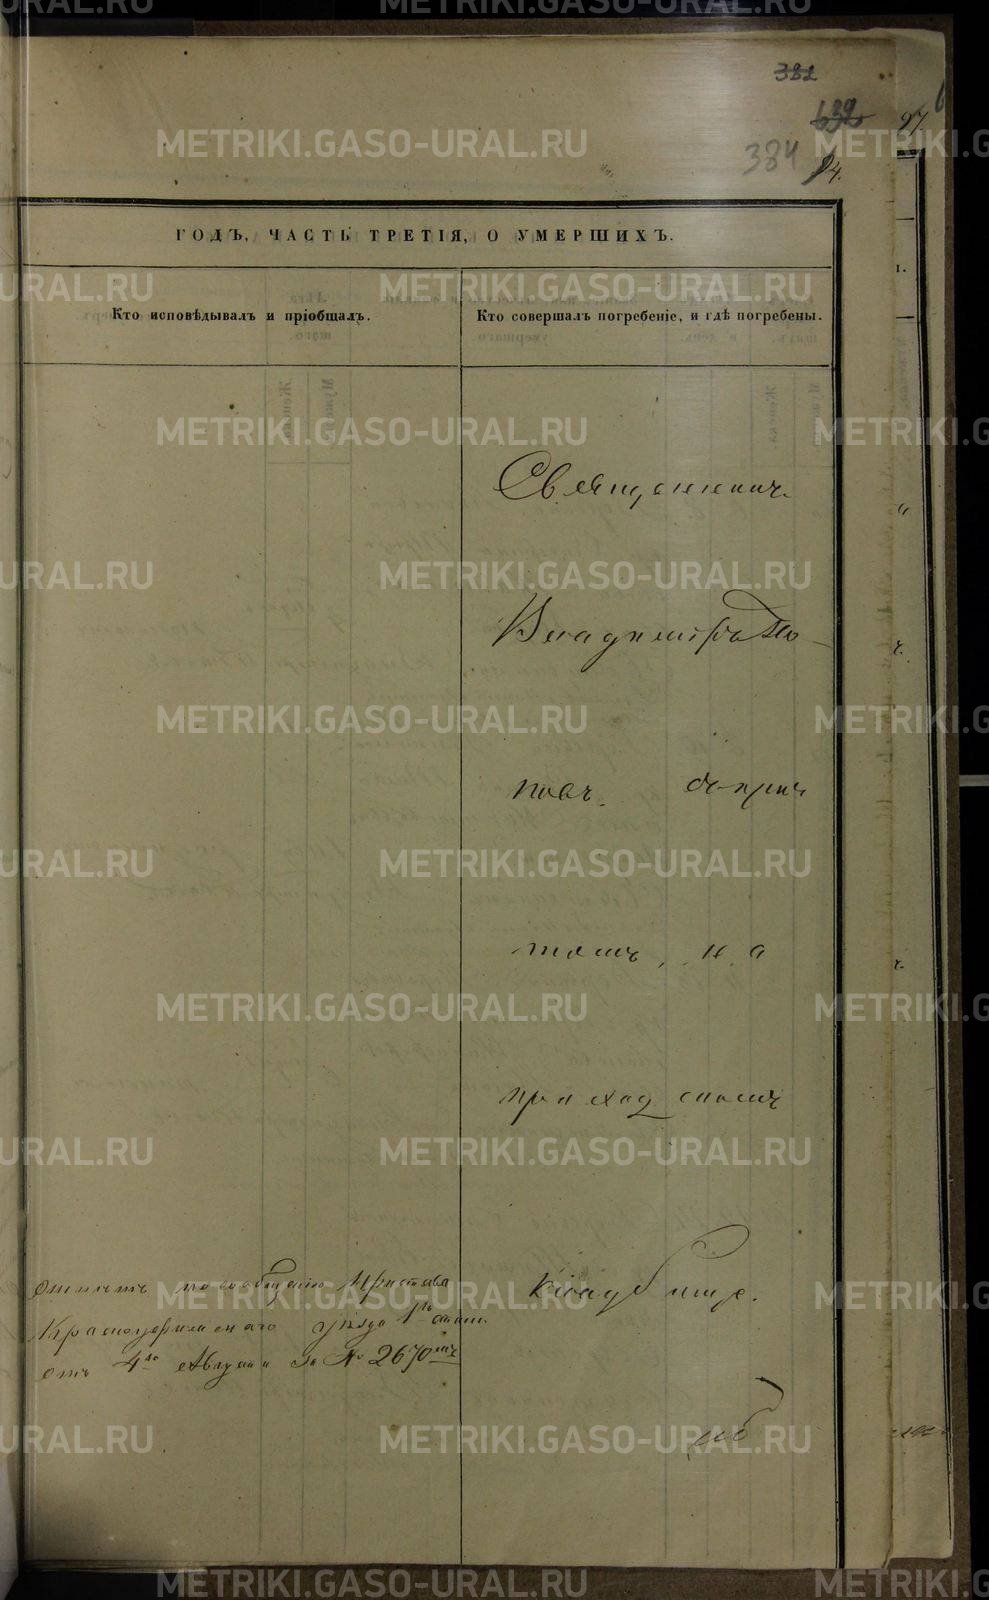 382
632
384
94.
97.
ГОДЪ, ЧАСТЬ ТРЕТІЯ, О УМЕРШИХЪ.
Кто исповѣдывалъ и пріобщалъ.
Кто совершалъ погребеніе, и гдѣ погребены.
Священникъ
Владиміръ По-
повъ. съ прич
томъ, на
приходскомъ
кладбище.
по сообщенію Пристава
Красноуфимскаго уѣзда 1го стана
отъ 4го Августа за № 2670мъ
METRIKI.GASO-URAL.RU